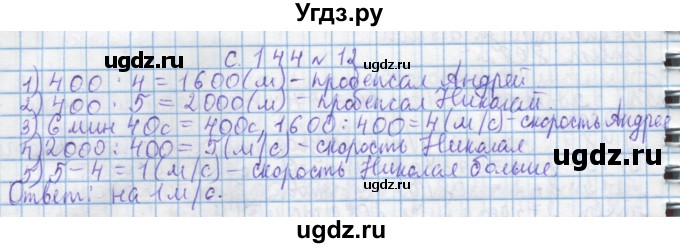 Угдз.ру
с. 144 № 12
1) 400 · 4 = 1600 (м) - пробежал Андрей
2) 400 · 5 = 2000 (м) - пробежал Николай.
3) 6 мин 40с = 400с, 1600 : 400 = 4 (м/с) - скорость Андрея
4) 2000 : 400 = 5 (м/с) - скорость Николая
5) 5 - 4 = 1 (м/с) - скорость Николая больше
Ответ: на 1 м/с.
gdz.ru
gdz.ru
gdz.ru
gdz.ru